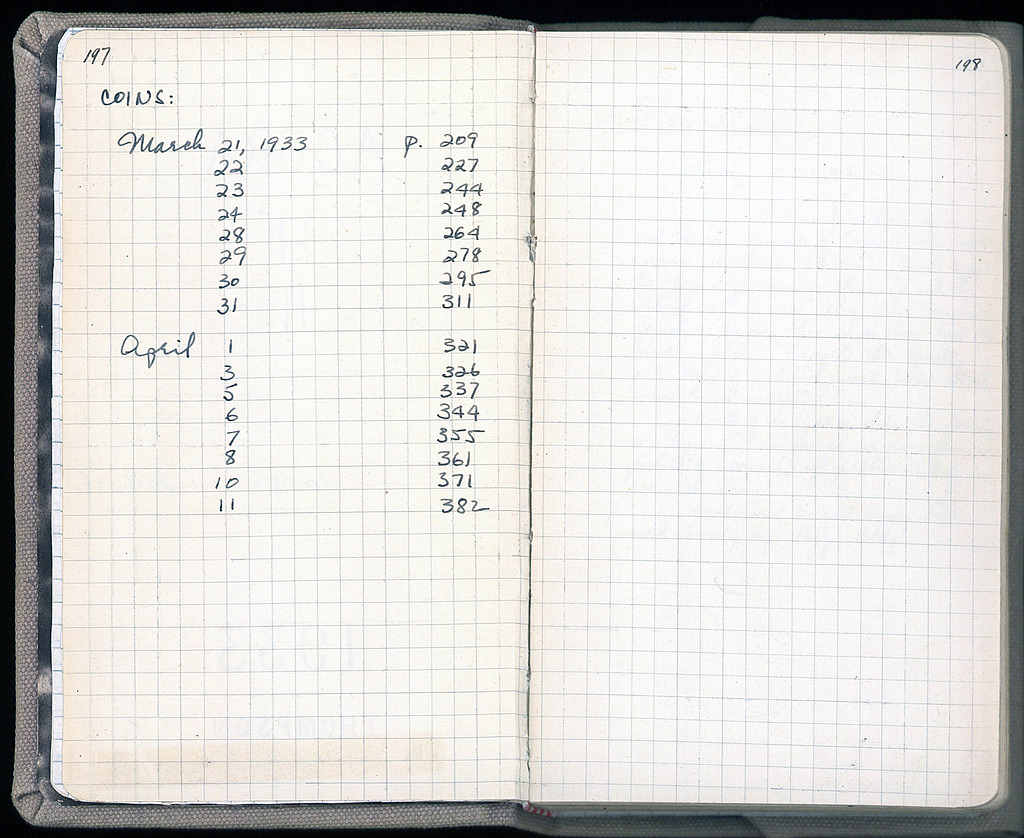 197
198
COINS:
March 21, 1933 p. 209
22 227
23 244
24 248
28 264
29 278
30 295
31 311
April 1 321
3 326
5 337
6 344
7 355
8 361
10 371
11 382